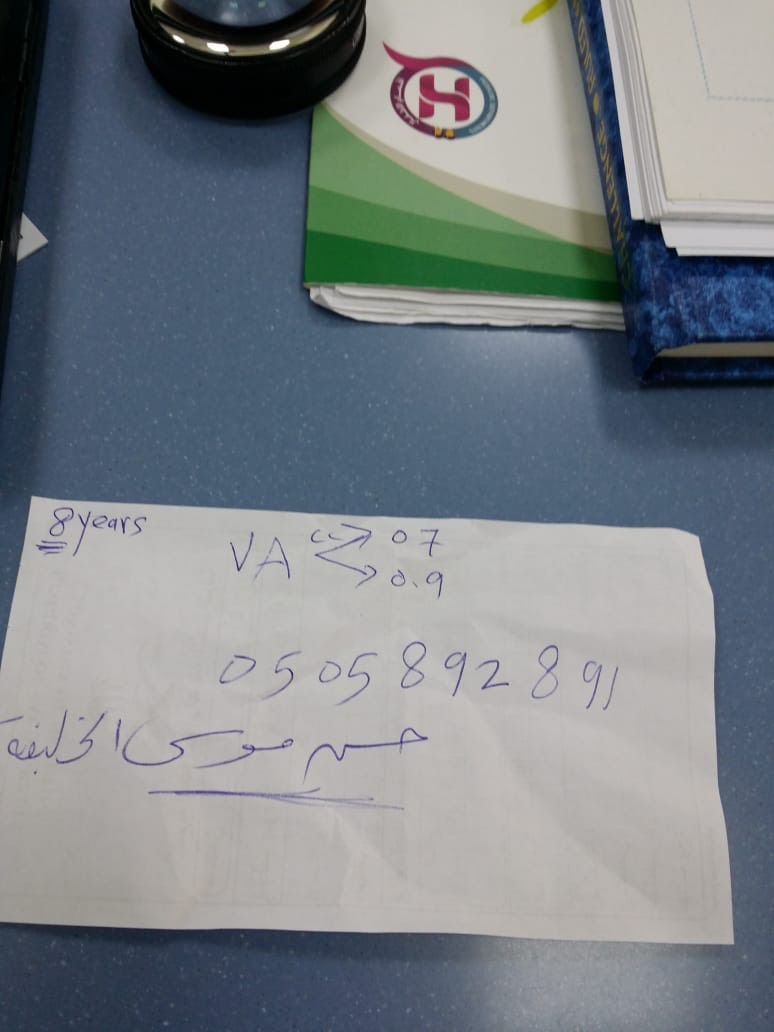 8 years
VA c 0.7
0.9
0505892891
حسن موسى الخليفة
H